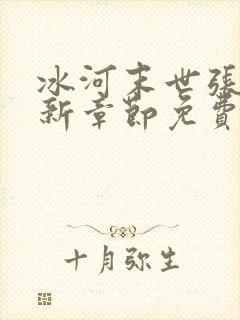 冰河末世张
新章节免费
十月弥生